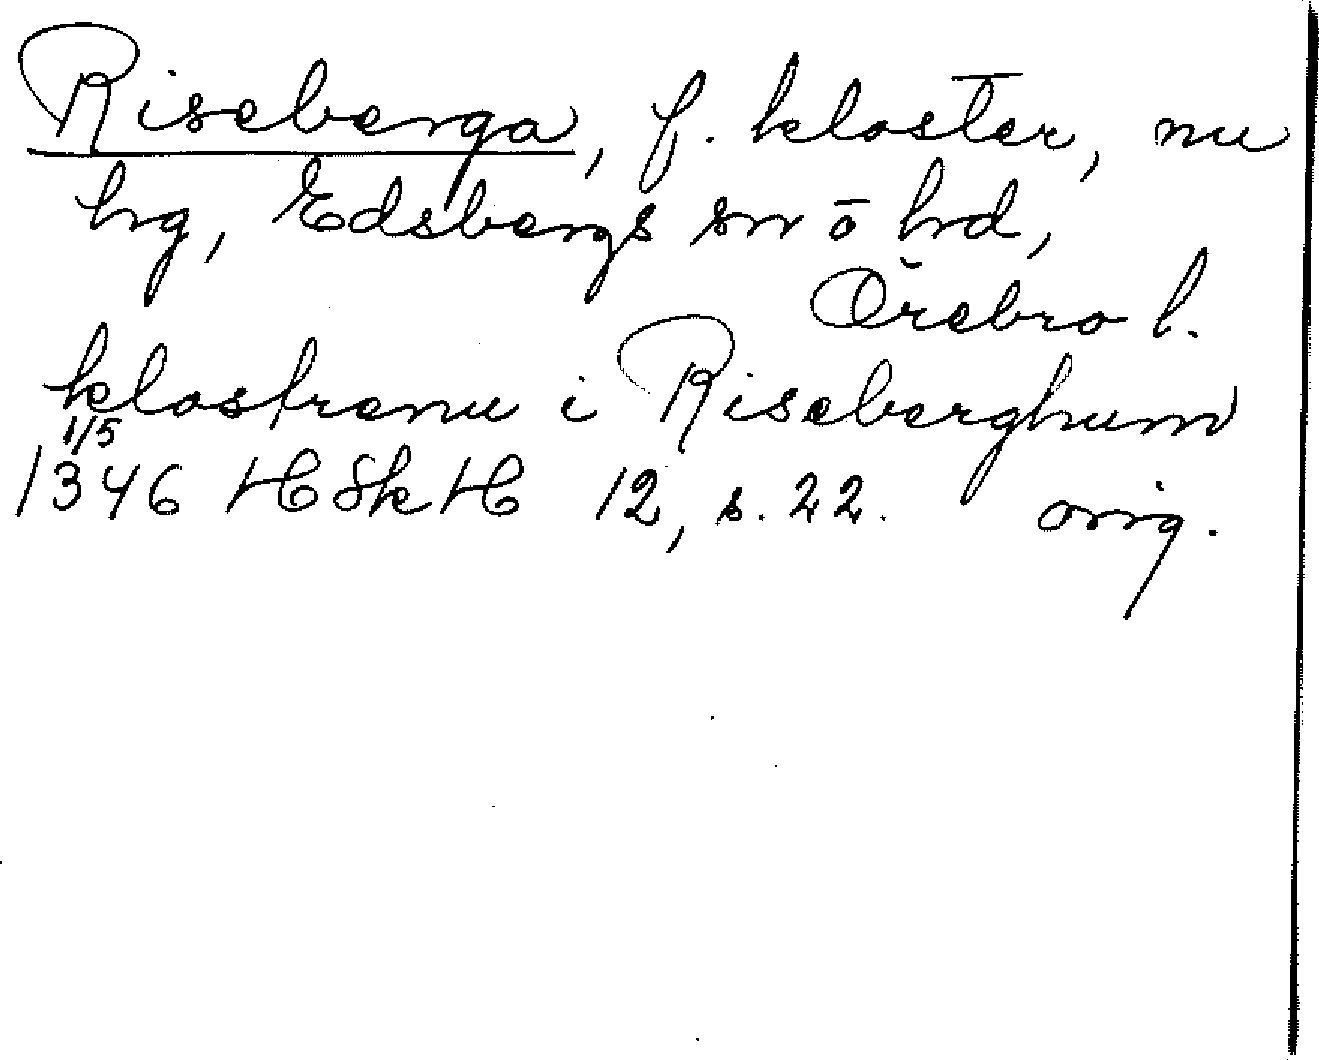 Riseberga, f. kloster, nu
hg, Edsbergs sn o hd,
Örebro l.
klostrenu i Riseberghum
1/5
1346 HSkH 12, s. 22. orig.